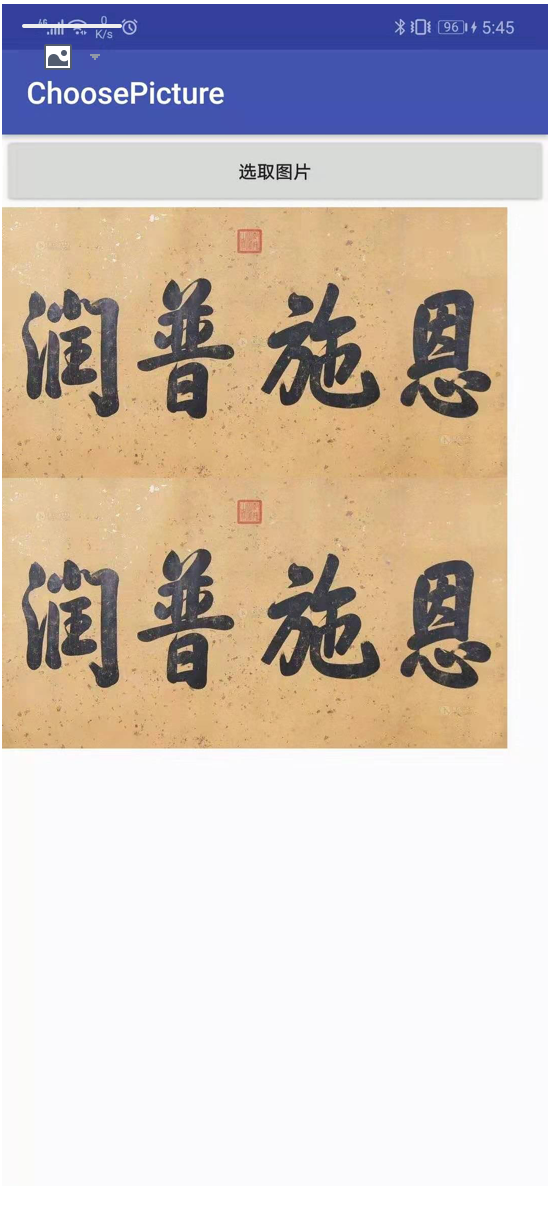 4G
0
K/s
96
5:45
ChoosePicture
选取图片
润普施恩
润普施恩